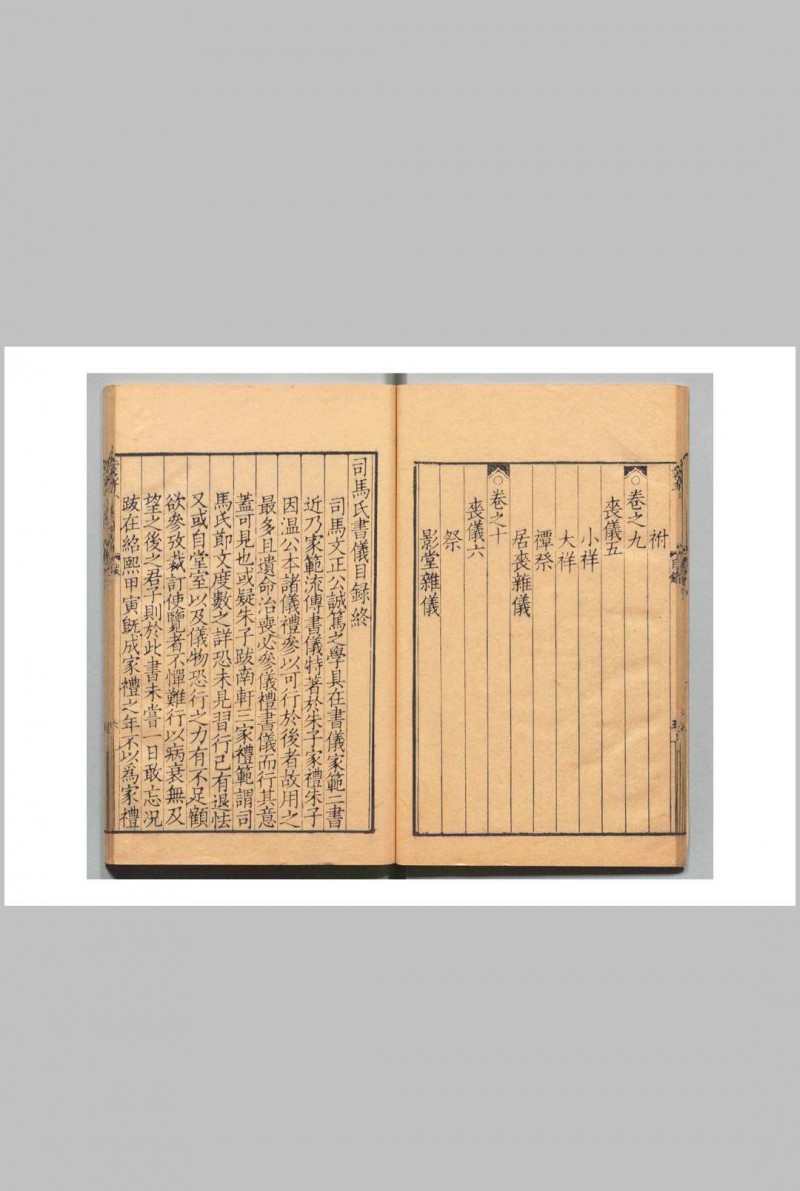 祔
卷之九
喪儀五
小祥
大祥
禫祭
居喪雜儀
卷之十
喪儀六
祭
影堂雜儀
司馬氏書儀目録終
司馬文正公誠篤之學具在書儀家範二書
近乃家範流傳書儀特著於朱子家禮朱子
因温公本諸儀禮參以可行於後者故用之
最多且遺命治喪必參儀禮書儀而行其意
蓋可見也或疑朱子跋南軒三家禮範謂司
馬氏節文度數之詳恐未見習行已有退怯
又或自堂室以及儀物恐行之力有不足顧
欲參攷裁訂使覽者不憚難行以病衰無及
望之後之君子則於此書未嘗一日敢忘況
跋在紹熙甲寅旣成家禮之年不以爲家禮